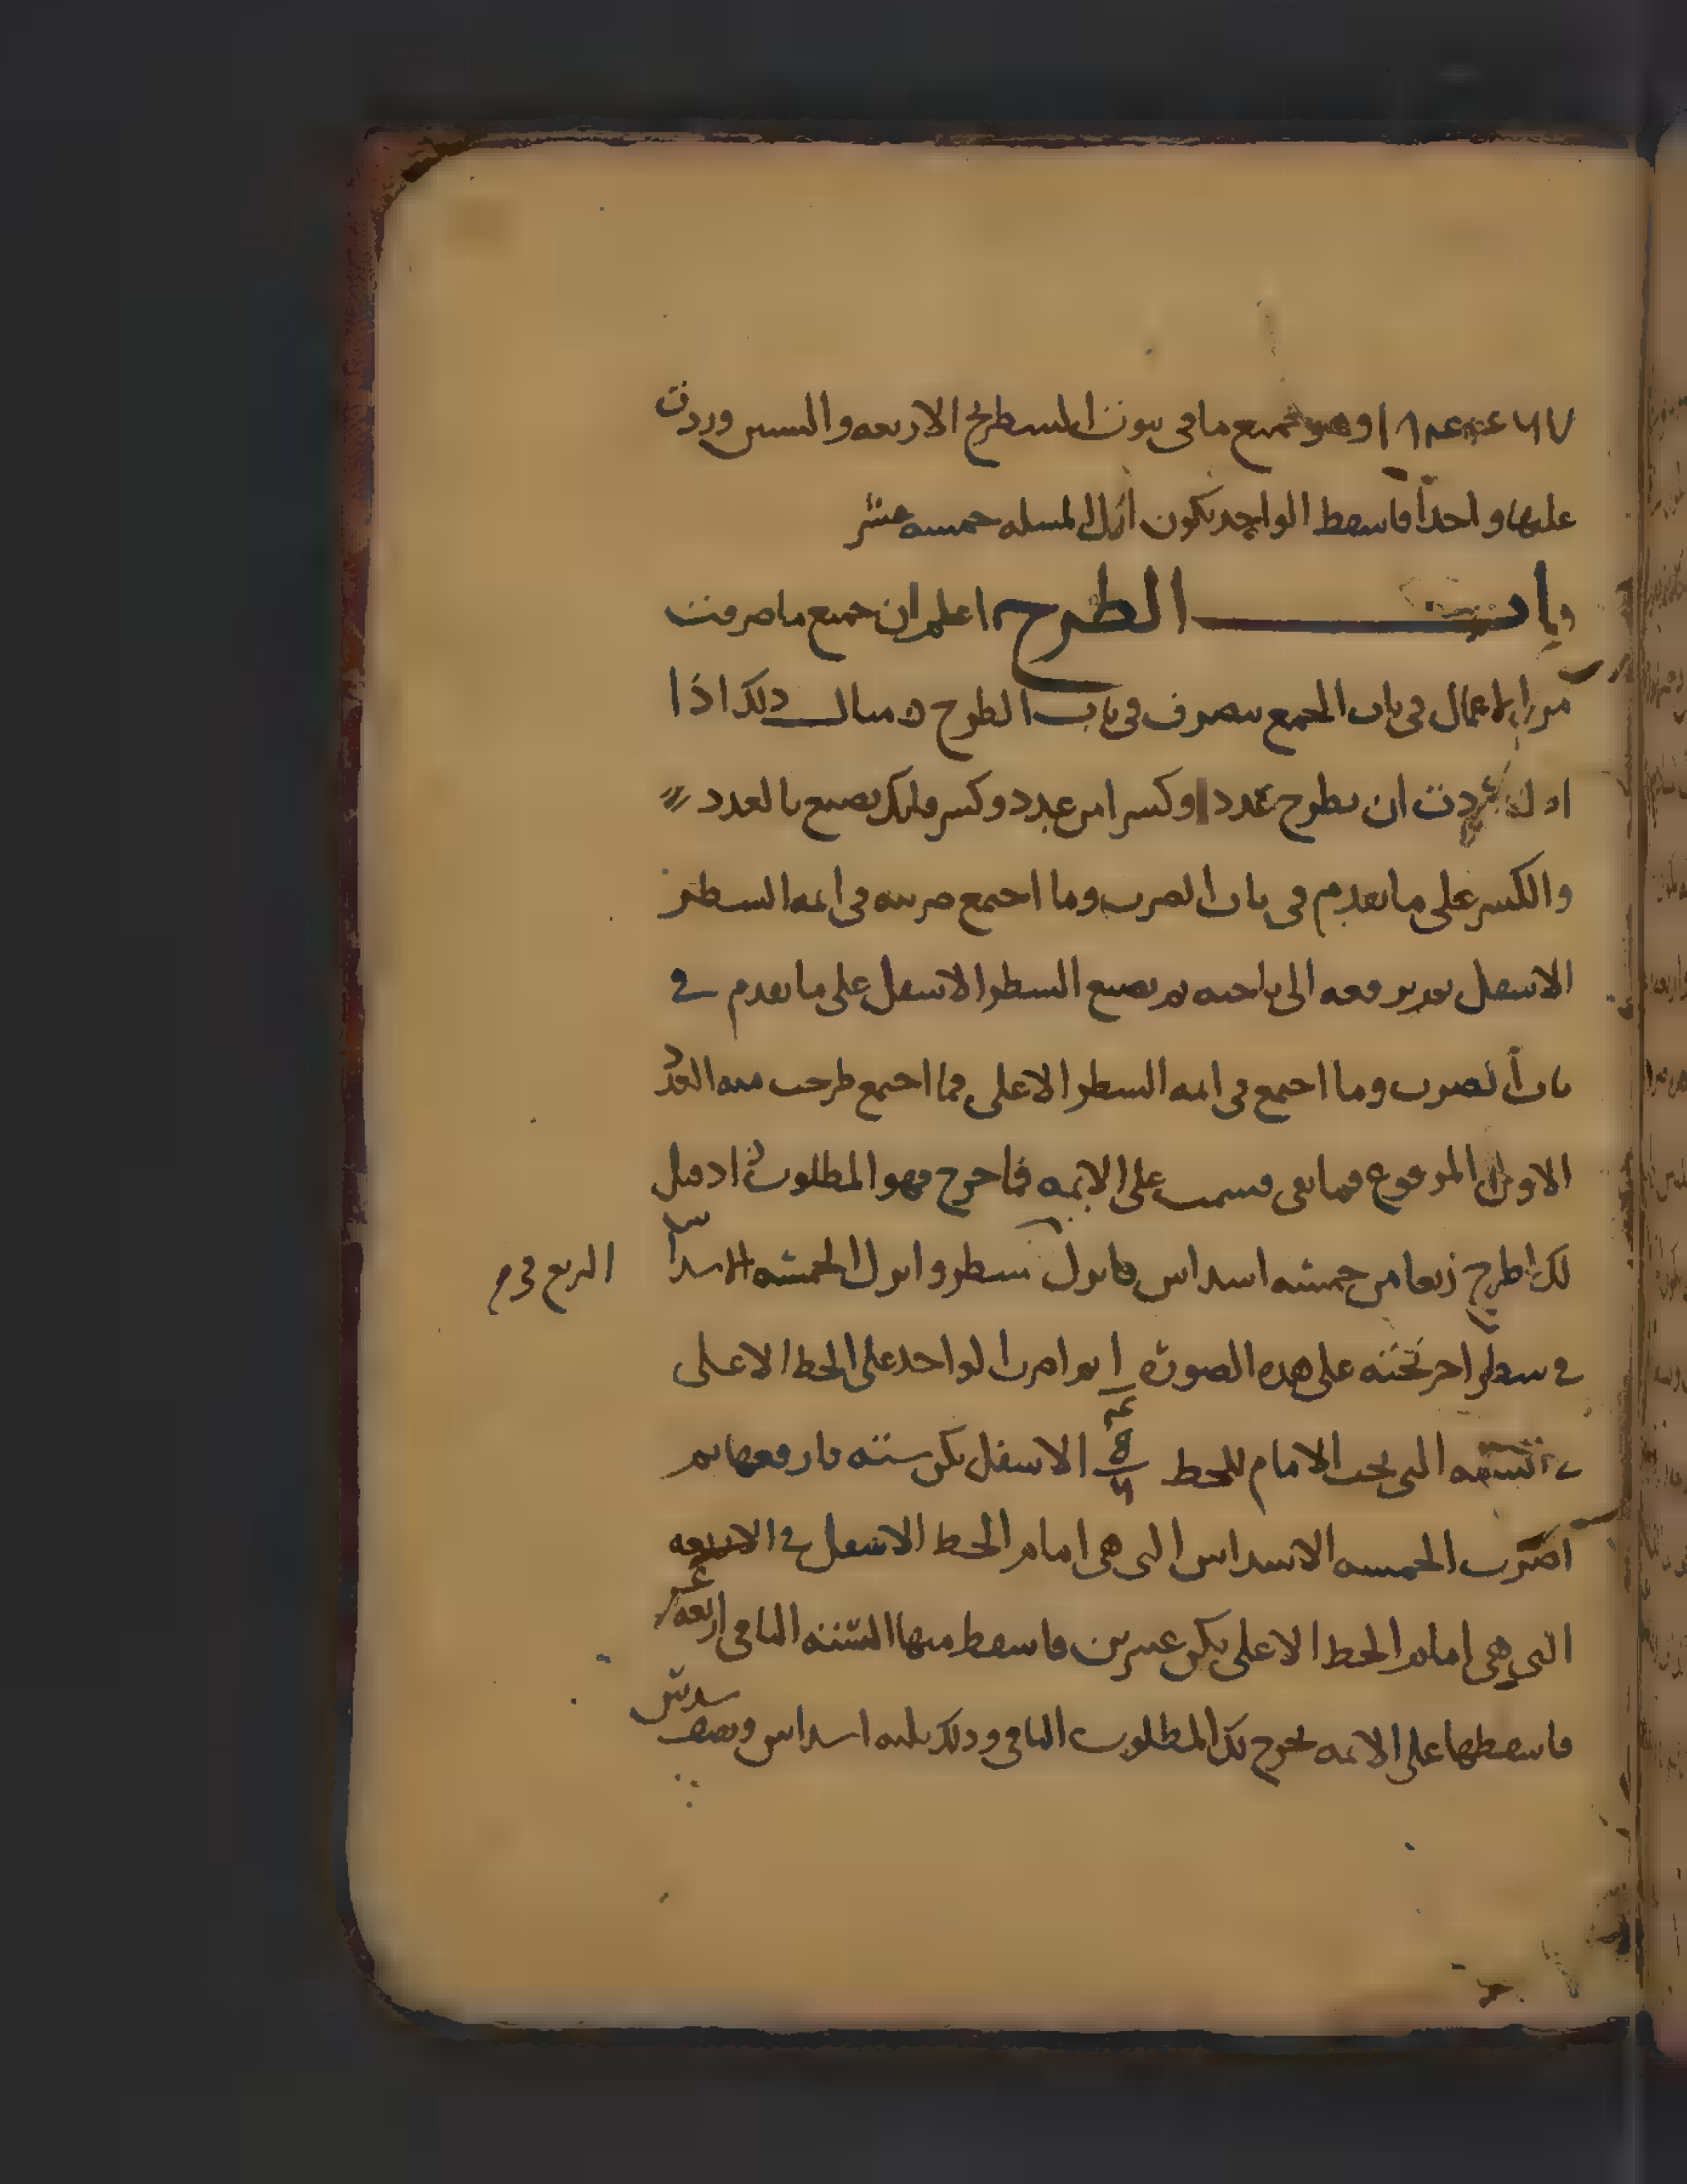 وهو جميع ما في بيوت السطرنج الاربعه والستين وردت
عليها واحداً فاسقط الواحد يكون المسله خمسه عشر
باب الطرح اعلم ان جميع ما صرفت
من الاعمال في باب الجمع ينصرف في باب الطرح ه مثال ذلك اذا
اردت ان تطرح عددا وكسرا من عدد وكسر فانك تصنع بالعدد
والكسر على ما تقدم في باب الضرب وما اجتمع ضربته في ايمه السطر
الاسفل ثم ترفعه الى ناحيه ثم تصنع السطر الاسفل على ما تقدم في
باب الضرب وما اجتمع في ايمه السطر الاعلى فما اجتمع طرحت منه العدد
الاول المرفوع فما بقي قسمت على الايمه فما خرج فهو المطلوب اذ قيل
لك اطرح ربعا من خمسه اسداس فانزل الربع في سطر وانزل الخمسه اسداس
في سطر اخر تحته على هذه الصوره ١ ثم اضرب الواحد على الخط الاعلى
في السته التي تحت الامام للخط الاسفل يكن سته فارفعها ثم
اضرب الخمسه الاسداس التي هي امام الخط الاسفل في الاربعه
التي هي امام الخط الاعلى يكن عشرين فاسقط منها السته الباقي اربعه عشر
فاسقطها على الايمه يخرج لك المطلوب الباقي وذلك ثلثه اسداس ونصف سدس